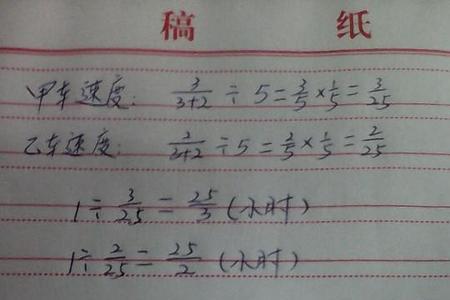 稿 纸
甲车速度: 3/(3+2) ÷ 5 = 3/5 × 1/5 = 3/25
乙车速度: 2/(3+2) ÷ 5 = 2/5 × 1/5 = 2/25
1 ÷ 3/25 = 25/3 (小时)
1 ÷ 2/25 = 25/2 (小时)